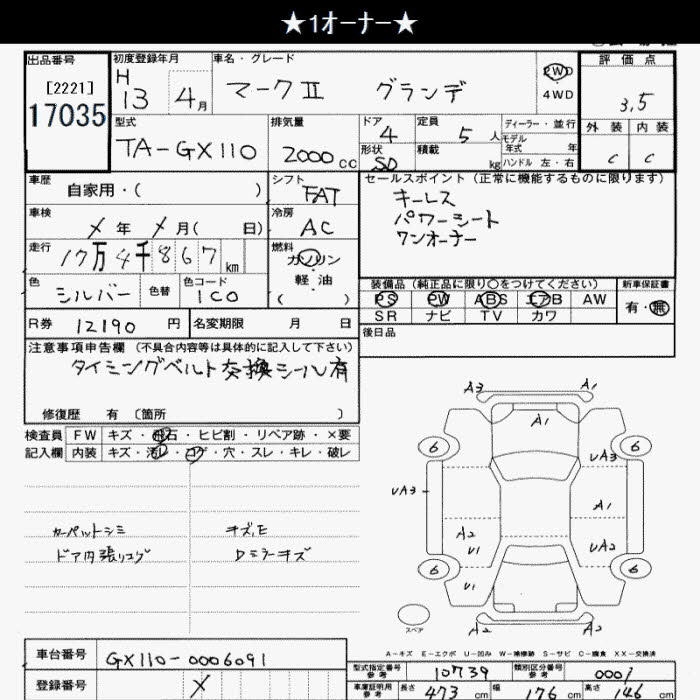 ★1オーナー★
出品番号 初度登録年月 車名・グレード 2WD 評価点
[2221] H 13 4月 マークⅡ グランデ 4WD 3.5
17035 型式 排気量 ドア 定員 ディーラー・並行 外装 内装
TA-GX110 2000cc 4 5人 モデル年式 年 C C
形状 SD 積載 kg ハンドル 左・右
車歴 自家用・( ) シフト FAT セールスポイント (正常に機能するものに限ります)
車検 メ年 メ月( 日) 冷房 AC キーレス
パワーシート
ワンオーナー
走行 17万4千867km 燃料 ガソリン
軽・油
( )
色 シルバー 色替 色コード 1C0 装備品 (純正品に限り○をつけてください) 新車保証書
PS PW ABS エアB AW 有・無
SR ナビ TV カワ
R券 12190円 名変期限 月 日 後日品
注意事項申告欄 (不具合内容等は具体的に記入して下さい)
タイミングベルト交換シール有
修復歴 有 〔箇所 〕
検査員 FW キズ・飛石・ヒビ割・リペア跡・×要
記入欄 内装 キズ・汚レ・コゲ・穴・スレ・キレ・破レ
カーペットシミ キズ,E
ドア内張りコゲ Dミラーキズ
A3 A1
A1
6 6
UA3
UA3
A1
A2
U1 UA2
6 6
U1
スペア A2 A2
A-キズ E-エクボ U-凹み W-補修跡 S-サビ C-腐食 XX-交換済
車台番号 GX110-0006091
登録番号 メ
型式指定番号 参考 10739 類別区分番号 参考 0001
車庫証明用 参考 長さ 473cm 幅 176cm 高さ 146cm